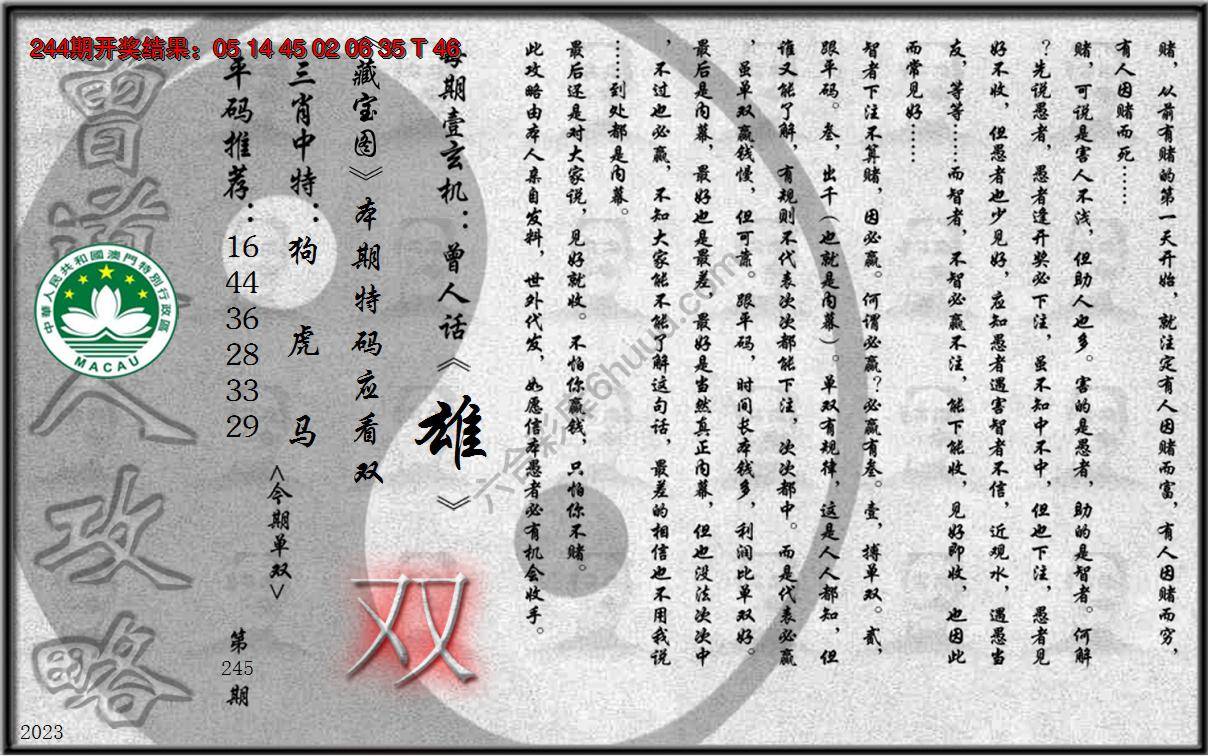 244期开奖结果：05 14 45 02 06 35 T 46
赌，从前有赌的第一天开始，就注定有人因赌而富，有人因赌而穷，
有人因赌而死……
赌，可说是害人不浅，但助人也多。害的是愚者，助的是智者。何解
？先说愚者，愚者逢开奖必下注，虽不知中不中，但也下注，愚者见
好不收，但愚者也少见好，应知愚者遇害智者不信，近观水，遇愚当
友，等等……而智者，不智必赢不注，能下能收，见好即收，也因此
而常见好……
智者下注不算赌，因必赢。何谓必赢？必赢有叁。壹，搏单双。贰，
跟平码。叁，出千（也就是内幕）。单双有规律，这是人人都知，但
谁又能了解，有规则不代表次次都能下注，次次都中。而是代表必赢
，虽单双赢钱慢，但可靠。跟平码，时间长本钱多，利润比单双好。
最后是内幕，最好也是最差，最好是当然真正内幕，但也没法次次中
，不过也必赢，不知大家能不能了解这句话，最差的相信也不用我说
……到处都是内幕。
最后还是对大家说，见好就收。不怕你赢钱，只怕你不赌。
此攻略由本人亲自发料，世外代发，如愿信本愚者必有机会收手。
每期壹玄机：曾人话《雄》
《藏宝图》本期特码应看双
双
三肖中特：狗 虎 马
<今期单双>
平码推荐：16 44 36 28 33 29
第245期
曾道人攻略
中華人民共和國澳門特別行政區
MACAU
2023
六合彩库6huuu.com